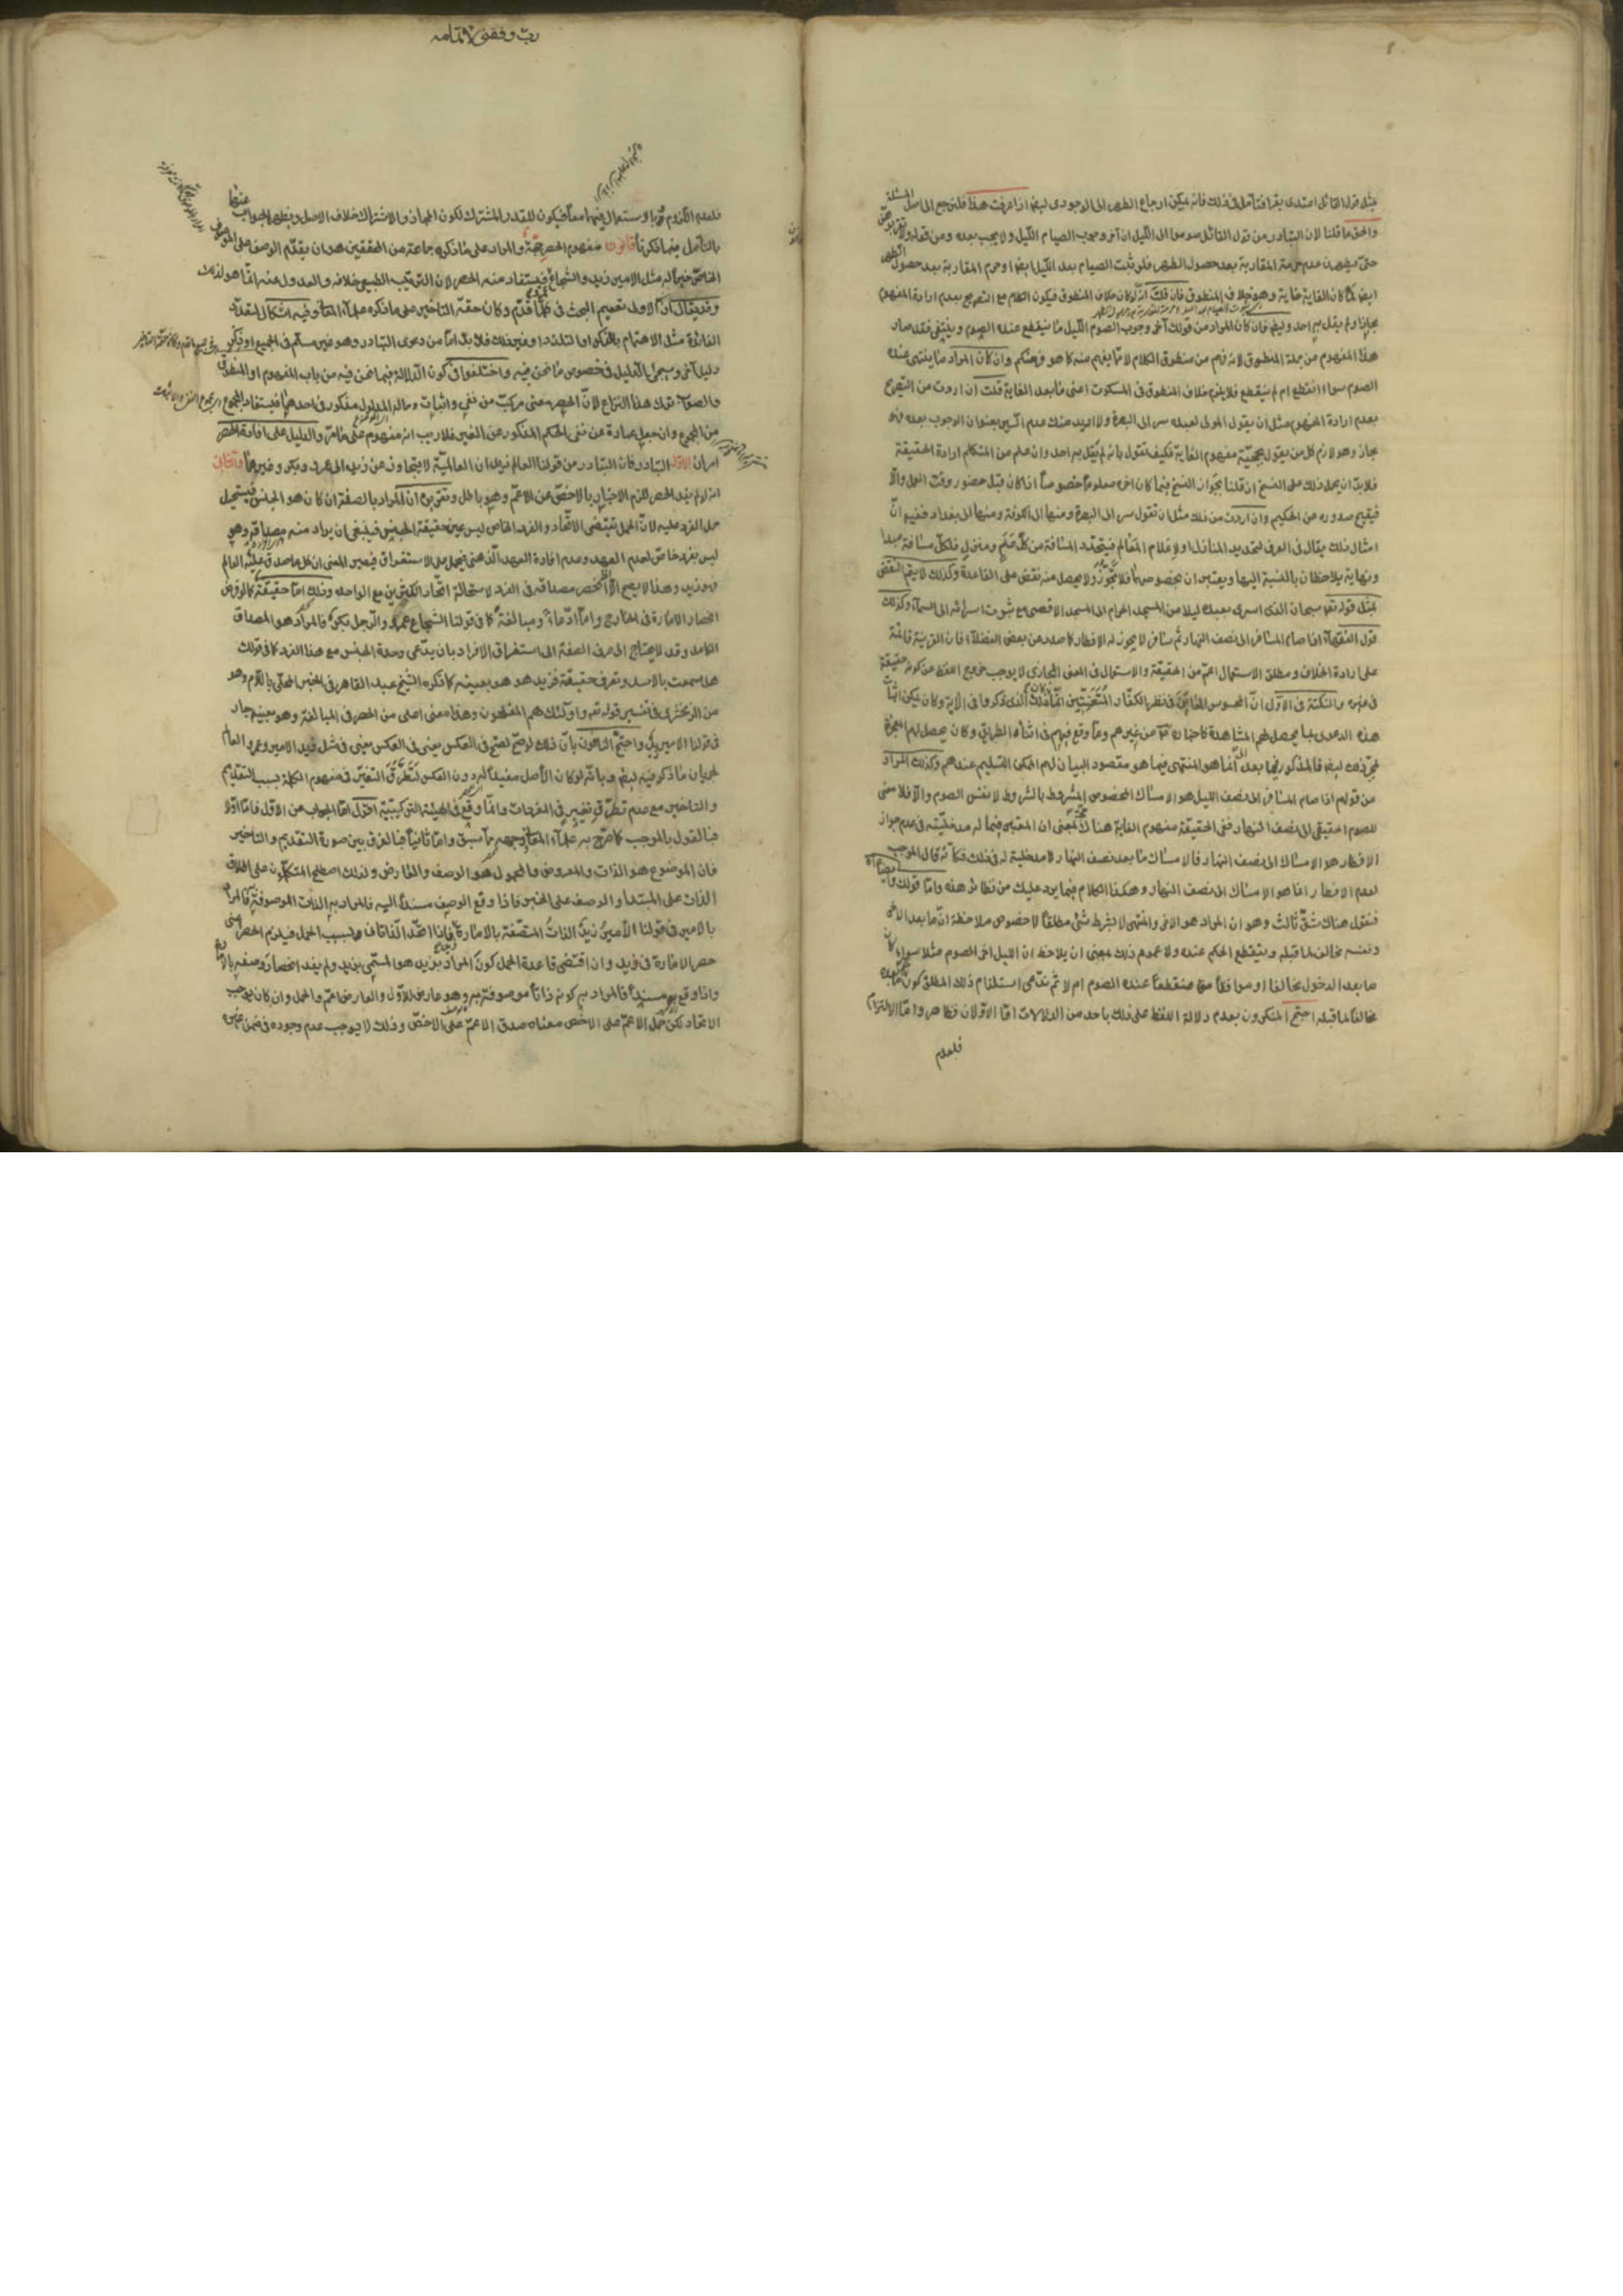 مثل قول القائل اعتدى بقرء فتأمل فى ذلك فانه يمكن ارجاع الطهر الى الوجودى ايضا اذا عرفت هذا فلنرجع الى اصل المسئلة
والحق ما قلنا لان التبادر من قول القائل صوموا الى الليل ان آخر وجوب الصيام الليل ولا يجب بعده ومن قوله ولا تقربوهن
حتى يطهرن عدم حرمة المقاربة بعد حصول الطهر فلو ثبت الصيام بعد الليل ايضا وحرم المقاربة بعد حصول الطهر
ايضا لما كان الغاية غاية وهو خلاف المنطوق فان قلت انه لو كان خلاف المنطوق فيكون الكلام مع التصريح بعدم ارادة المفهوم
مجازا ولم يقل به احد وايضا فان كان المراد من قولك آخر وجوب الصوم الليل ما ينقطع عنده الصوم وينتفى فقد صار
هذا المفهوم من جملة المنطوق لانه فهم من منطوق الكلام لا مما يفهم منه كما هو فرضكم وان كان المراد ما ينتهى عنده
الصوم سواء انقطع ام لم ينقطع فلا يلزم خلاف المنطوق فى المسكوت اعنى ما بعد الغاية قلت ان اردت من التصريح
بعدم ارادة المفهوم مثل ان يقول المولى لعبده سر الى البصرة ولا اريد منك عدم السير بعنوان الوجوب بعده فهو
مجاز وهو لازم كل من يقول بحجية مفهوم الغاية فكيف تقول بانه لم يقل به احد وان علم من المتكلم ارادة الحقيقة
فلا بد ان يحمل ذلك على النسخ ان قلنا بجواز النسخ فيما كان اخره معلوما خصوصا اذا كان قبل حضور وقت العمل والا
فيقبح صدوره عن الحكيم وان اردت من ذلك مثل ان تقول سر الى البصرة ومنها الى الكوفة ومنها الى بغداد ففيه ان
امثال ذلك يقال فى العرف لتحديد المنازل او لاعلام المعالم فيتجدد المسافة من كل معلم ومنزل فلكل مسافة مبدا
ونهاية يلاحظان بالنسبة اليها ويعتبران بخصوصها فلا تجوز ولا يحصل منه نقض على القاعدة وكذلك لا يتم النقض
بمثل قوله تعالى سبحان الذى اسرى بعبده ليلا من المسجد الحرام الى المسجد الاقصى مع ثبوت اسرائه الى السماء وكذلك
قول الفقهاء اذا صام المسافر الى نصف النهار ثم سافر لا يجوز له الافطار كما صدر من بعض الفضلاء فان القرينة قائمة
على ارادة الخلاف ومطلق الاستعمال اعم من الحقيقة والاستعمال فى المعنى المجازى لا يوجب خروج اللفظ عن كونه حقيقة
هذه الدعوى بما يحصل لهم المشاهدة كاخباره عن عيرهم وما وقع فيهم فى اثناء الطريق وكان يحصل لهم المعجزة
من قولهم اذا صام المسافر الى نصف الليل هو الامساك المخصوص المشروط بالشروط لا نفس الصوم والا فلا معنى
للصوم الحقيقى الى نصف النهار ففى الحقيقة مفهوم الغاية هناك بمعنى ان المعتبر فيما له مدخلية فى عدم جواز
الافطار هو الامساك الى نصف النهار فالامساك ما بعد نصف النهار لا مدخلية له فى ذلك فكانه قال الموجب
لعدم الافطار انما هو الامساك الى نصف النهار وهكذا الكلام فيما يرد عليك من نظائر هذه واما قولك وايضا
فنقول هناك شق ثالث وهو ان المراد هو الاخر والمنتهى لا بشرط شئ مطلقا لا خصوص ملاحظة ان ما بعد الاخر
ونفسه مخالف لما قبله وينقطع الحكم عنده ولا عموم ذلك بمعنى ان يلاحظ ان الليل اخر الصوم مثلا سواء كان
ما بعد الدخول مخالفا او موافقا منقطعا عنده الصوم ام لا ثم ندعى استلزام ذلك المطلق كون ما بعده
مخالفا لما قبله احتج المنكرون بعدم دلالة اللفظ على ذلك باحد من الدلالات اما الاولان فظاهر واما الالتزام
فلعدم
رب وفقنى لاتمامه
فلعدم اللزوم وربما استعمل فيهما معا فيكون للقدر المشترك لكون المجاز والاشتراك خلاف الاصل ويظهر الجواب عنها
بالتأمل فيما ذكرنا قانون مفهوم الحصر حجة والمراد على ما ذكره جماعة من المحققين هو ان يقدم الوصف على الموصوف
الخاص خبرا له مثل الامير زيد والشجاع فيستفاد منه الحصر لان الترتيب الطبيعى خلافه والعدول عنه انما هو لذلك
وقد يقال ان الاولى تعميم البحث فى كل ما قدم وكان حقه التاخير على ما ذكره علماء المعانى وفيه اشكال لتعدد
الفائدة مثل الاهتمام بالذكر او التلذذ او غير ذلك فلا بد اما من دعوى التبادر وهو غير مسلم فى الجميع او يذكر
دليل آخر وسيجئ الدليل فى خصوص ما نحن فيه واختلفوا فى كون الدلالة فيما نحن فيه من باب المفهوم او المنطوق
والصواب ترك هذا النزاع لان الحصر معنى مركب من نفى واثبات وماله المدلول مذكور فى احدهما فيستفاد المجموع
من المجموع وان جعل عبارة عن نفى الحكم المذكور عن الغير فلا ريب انه مفهوم على ما مر والدليل على افادة الحصر
امران الاول التبادر فان التبادر من قولنا العالم زيد ان العالمية لا يتجاوز عن زيد الى عمرو وبكر وغيرهما والثانى
انه لو لم يفد الحصر للزم الاخبار بالاخص عن الاعم وهو باطل وتقريره ان المراد بالصفة ان كان هو الجنس فيستحيل
حمل الفرد عليه لان الحمل يقتضى الاتحاد والفرد الخاص ليس عين حقيقة الجنس فينبغى ان يراد منه مصداقه وهو
ليس بفرد خاص لعدم العهد وعدم افادة العهد الذهنى فيحمل على الاستغراق فيصير المعنى ان كل ما صدق عليه العالم
فهو زيد وهذا لا يصح الا اذا انحصر مصداقه فى الفرد لاستحالة اتحاد الكثيرين مع الواحد وذلك اما حقيقة كما لو فرض
انحصار الامارة فى الخارج واما ادعاء ومبالغة كما فى قولنا الشجاع عمرو والرجل بكر فالمراد هو المصداق
الكامل وقد لا يحتاج الى صرف الصفة الى استغراق الافراد بان يدعى وحدة الجنس مع هذا الفرد كما فى قولك
هل سمعت بالاسد وتعرف حقيقة فزيد هو هو بعينه كما ذكره الشيخ عبد القاهر فى الخبر المحلى باللام وهو
من الزمخشرى فى تفسير قوله تعالى واولئك هم المفلحون وهذا معنى اعلى من الحصر فى المبالغة وهو بعينه جار
فى قولنا الامير زيد واحتج النافون بان ذلك لو صح لصح فى العكس يعنى فى العكس يعنى فى مثل زيد الامير وعمرو العالم
لجريان ما ذكر فيه ايضا وبانه لو كان الاصل مفيدا له دون العكس لتطرق التغير فى مفهوم الكلمة بسبب التقديم
والتاخير مع عدم تطرق تغير فى المفردات وانما وقع فى الهيئة التركيبية اقول اما الجواب عن الاول فاما اولا
فبالقول بالموجب كما صرح به علماء المعانى وجهه ما سبق واما ثانيا فبالفرق بين صورة التقديم والتاخير
فان الموضوع هو الذات والمعروض والمحمول هو الوصف والعارض ولذلك اصطلح المتكلمون على اطلاق
الذات على المبتدا والوصف على الخبر فاذا وقع الوصف مسندا اليه فالمراد به الذات الموصوفة فالمراد
بالامير فى قولنا الامير زيد الذات المتصفة بالامارة فاذا اتحد الذاتان بسبب الحمل فيلزم الحصر
حصر الامارة فى زيد وان اقتضى قاعدة الحمل كون المراد بزيد هو المسمى بزيد ولم يفد انحصار وصفه بالامارة
واذا وقع مسندا فالمراد به كونه ذاتا موصوفة به وهو عارض للاول والعارض اعم والحمل وان كان يوجب
الاتحاد لكن حمل الاعم على الاخص معناه صدق الاعم على الاخص وذلك لا يوجب عدم وجوده فى ضمن غيره